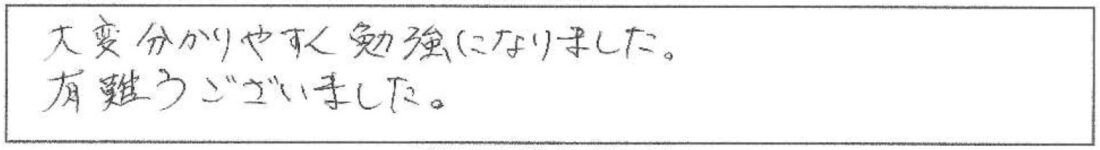 大変分かりやすく勉強になりました。
有難うございました。